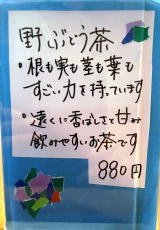 野ぶどう茶
・根も実も茎も葉も
すごい力を持っています
・遠くに香ばしさと甘み
飲みやすいお茶です
880円